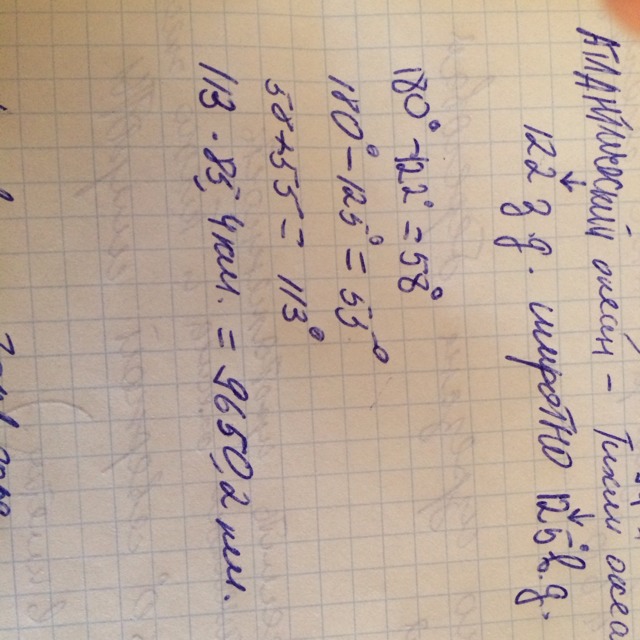 Атлантический океан - Тихий океа
↓ ↓
122 з д. широтно 125 в.д.
180° - 122° = 58°
180° - 125° = 55°
58 + 55 = 113°
113 · 85,4 км. = 9650,2 км.